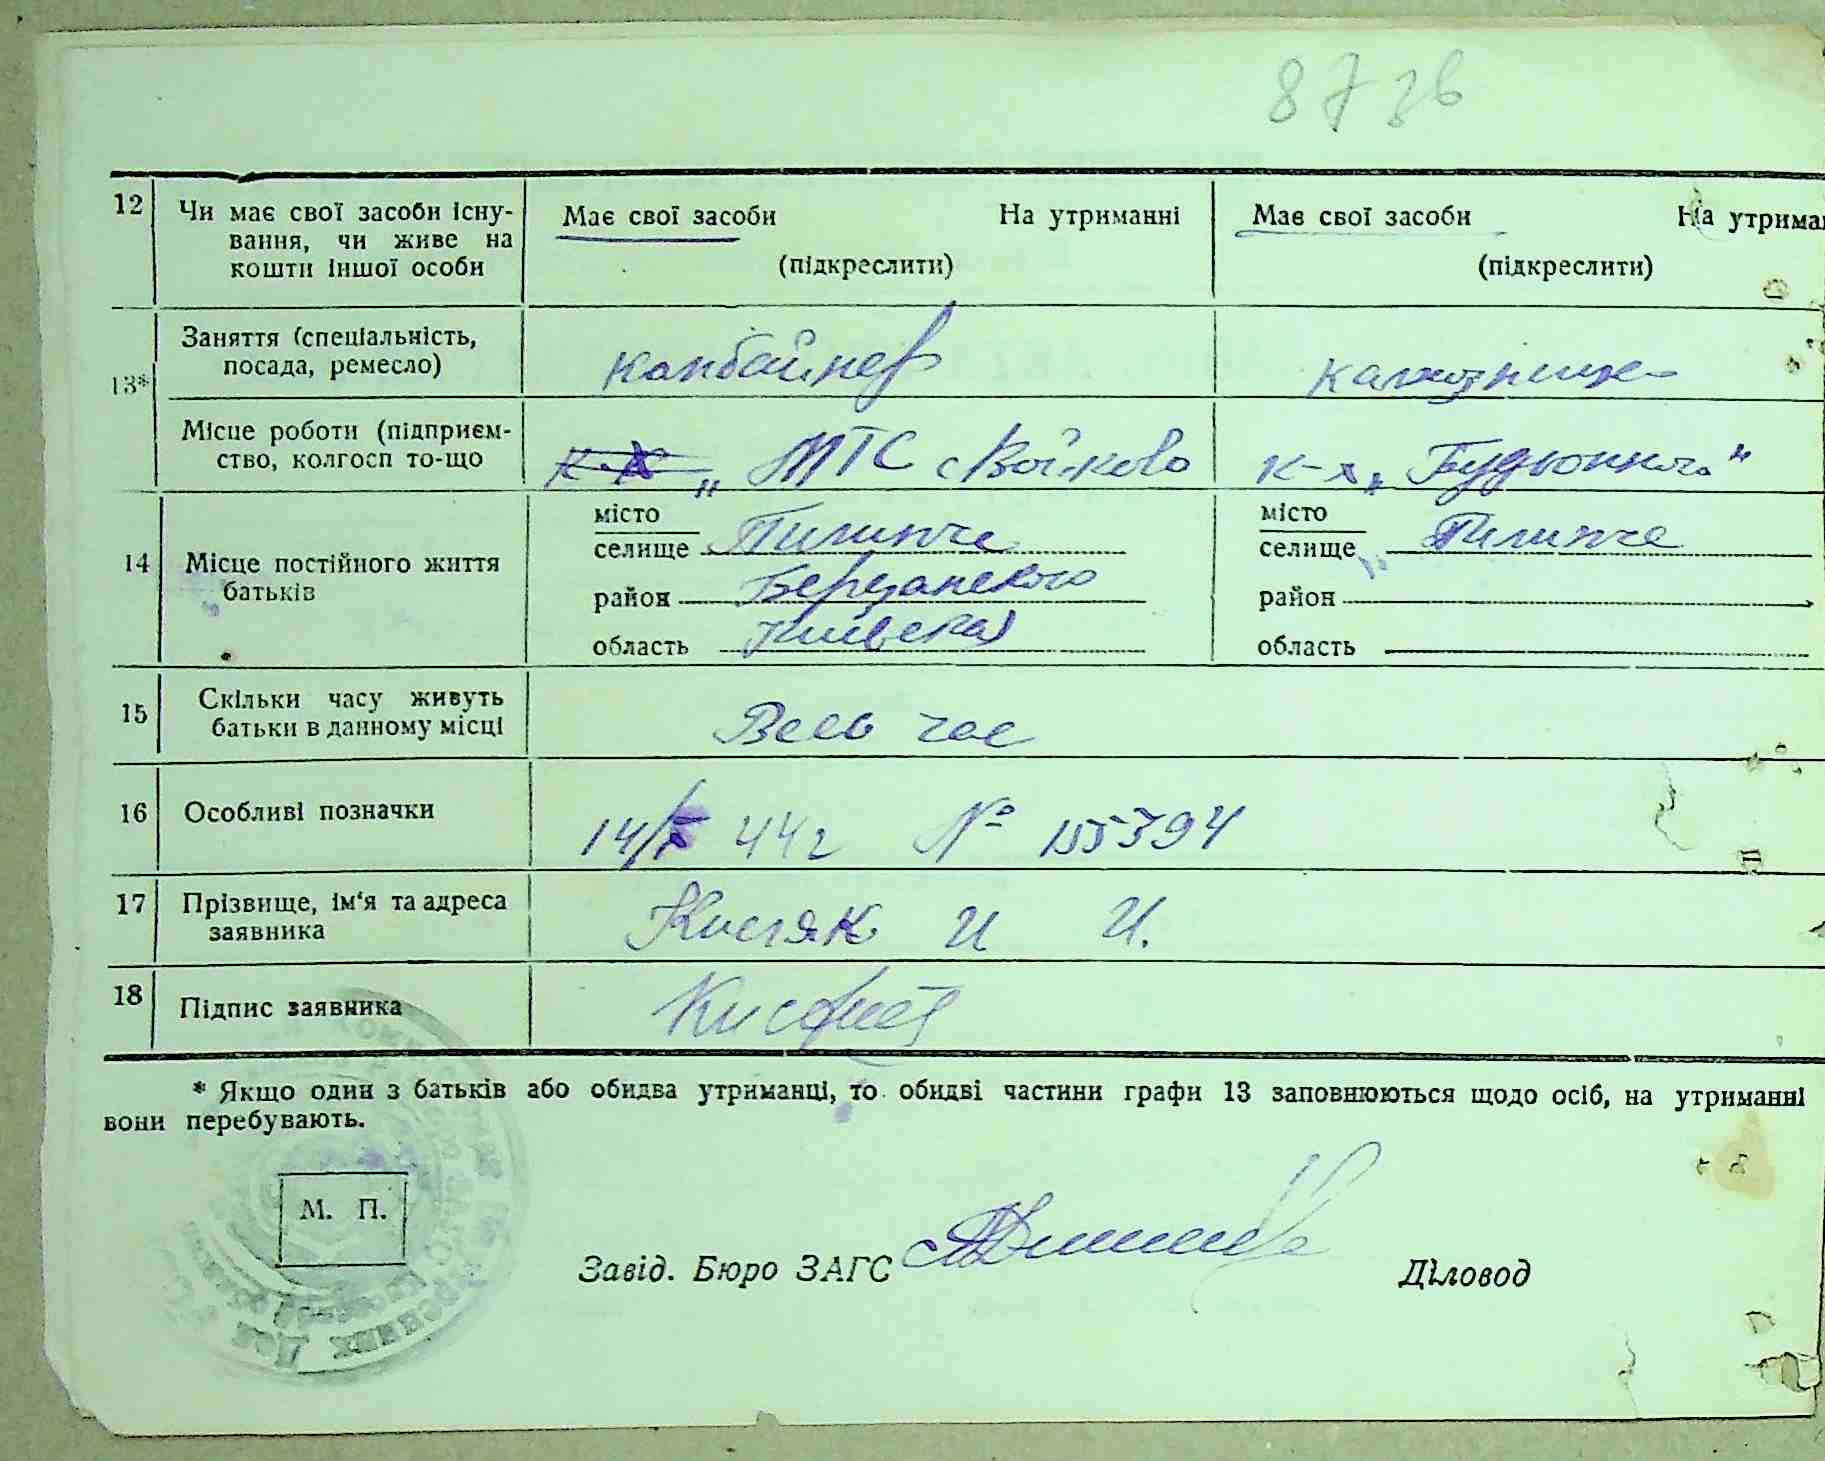 873в
12 Чи має свої засоби існу- Має свої засоби На утриманні Має свої засоби На утриман
вання, чи живе на
кошти іншої особи (підкреслити) (підкреслити)
13* Заняття (спеціальність,
посада, ремесло) комбайнер колхозница
Місце роботи (підприєм-
ство, колгосп то-що к-х „ МТС Войково к-х „Будьонного"
14 Місце постійного життя
батьків
місто
селище Пилипче
район Березанского
область Киевская
місто
селище Пилипче
район
область
15 Скільки часу живуть
батьки в данному місці Весь час
16 Особливі позначки 14/X 44 г № 155394
17 Прізвище, ім'я та адреса
заявника Кисляк И И.
18 Підпис заявника
* Якщо один з батьків або обидва утриманці, то обидві частини графи 13 заповнюються щодо осіб, на утриманні
вони перебувають.
М. П.
Завід. Бюро ЗАГС Діловод